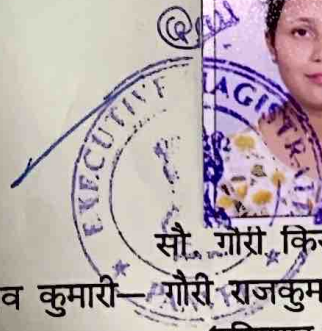 EXECUTIVE MAGISTRATE
सौ. गौरी कि
व कुमारी— गौरी राजकुम